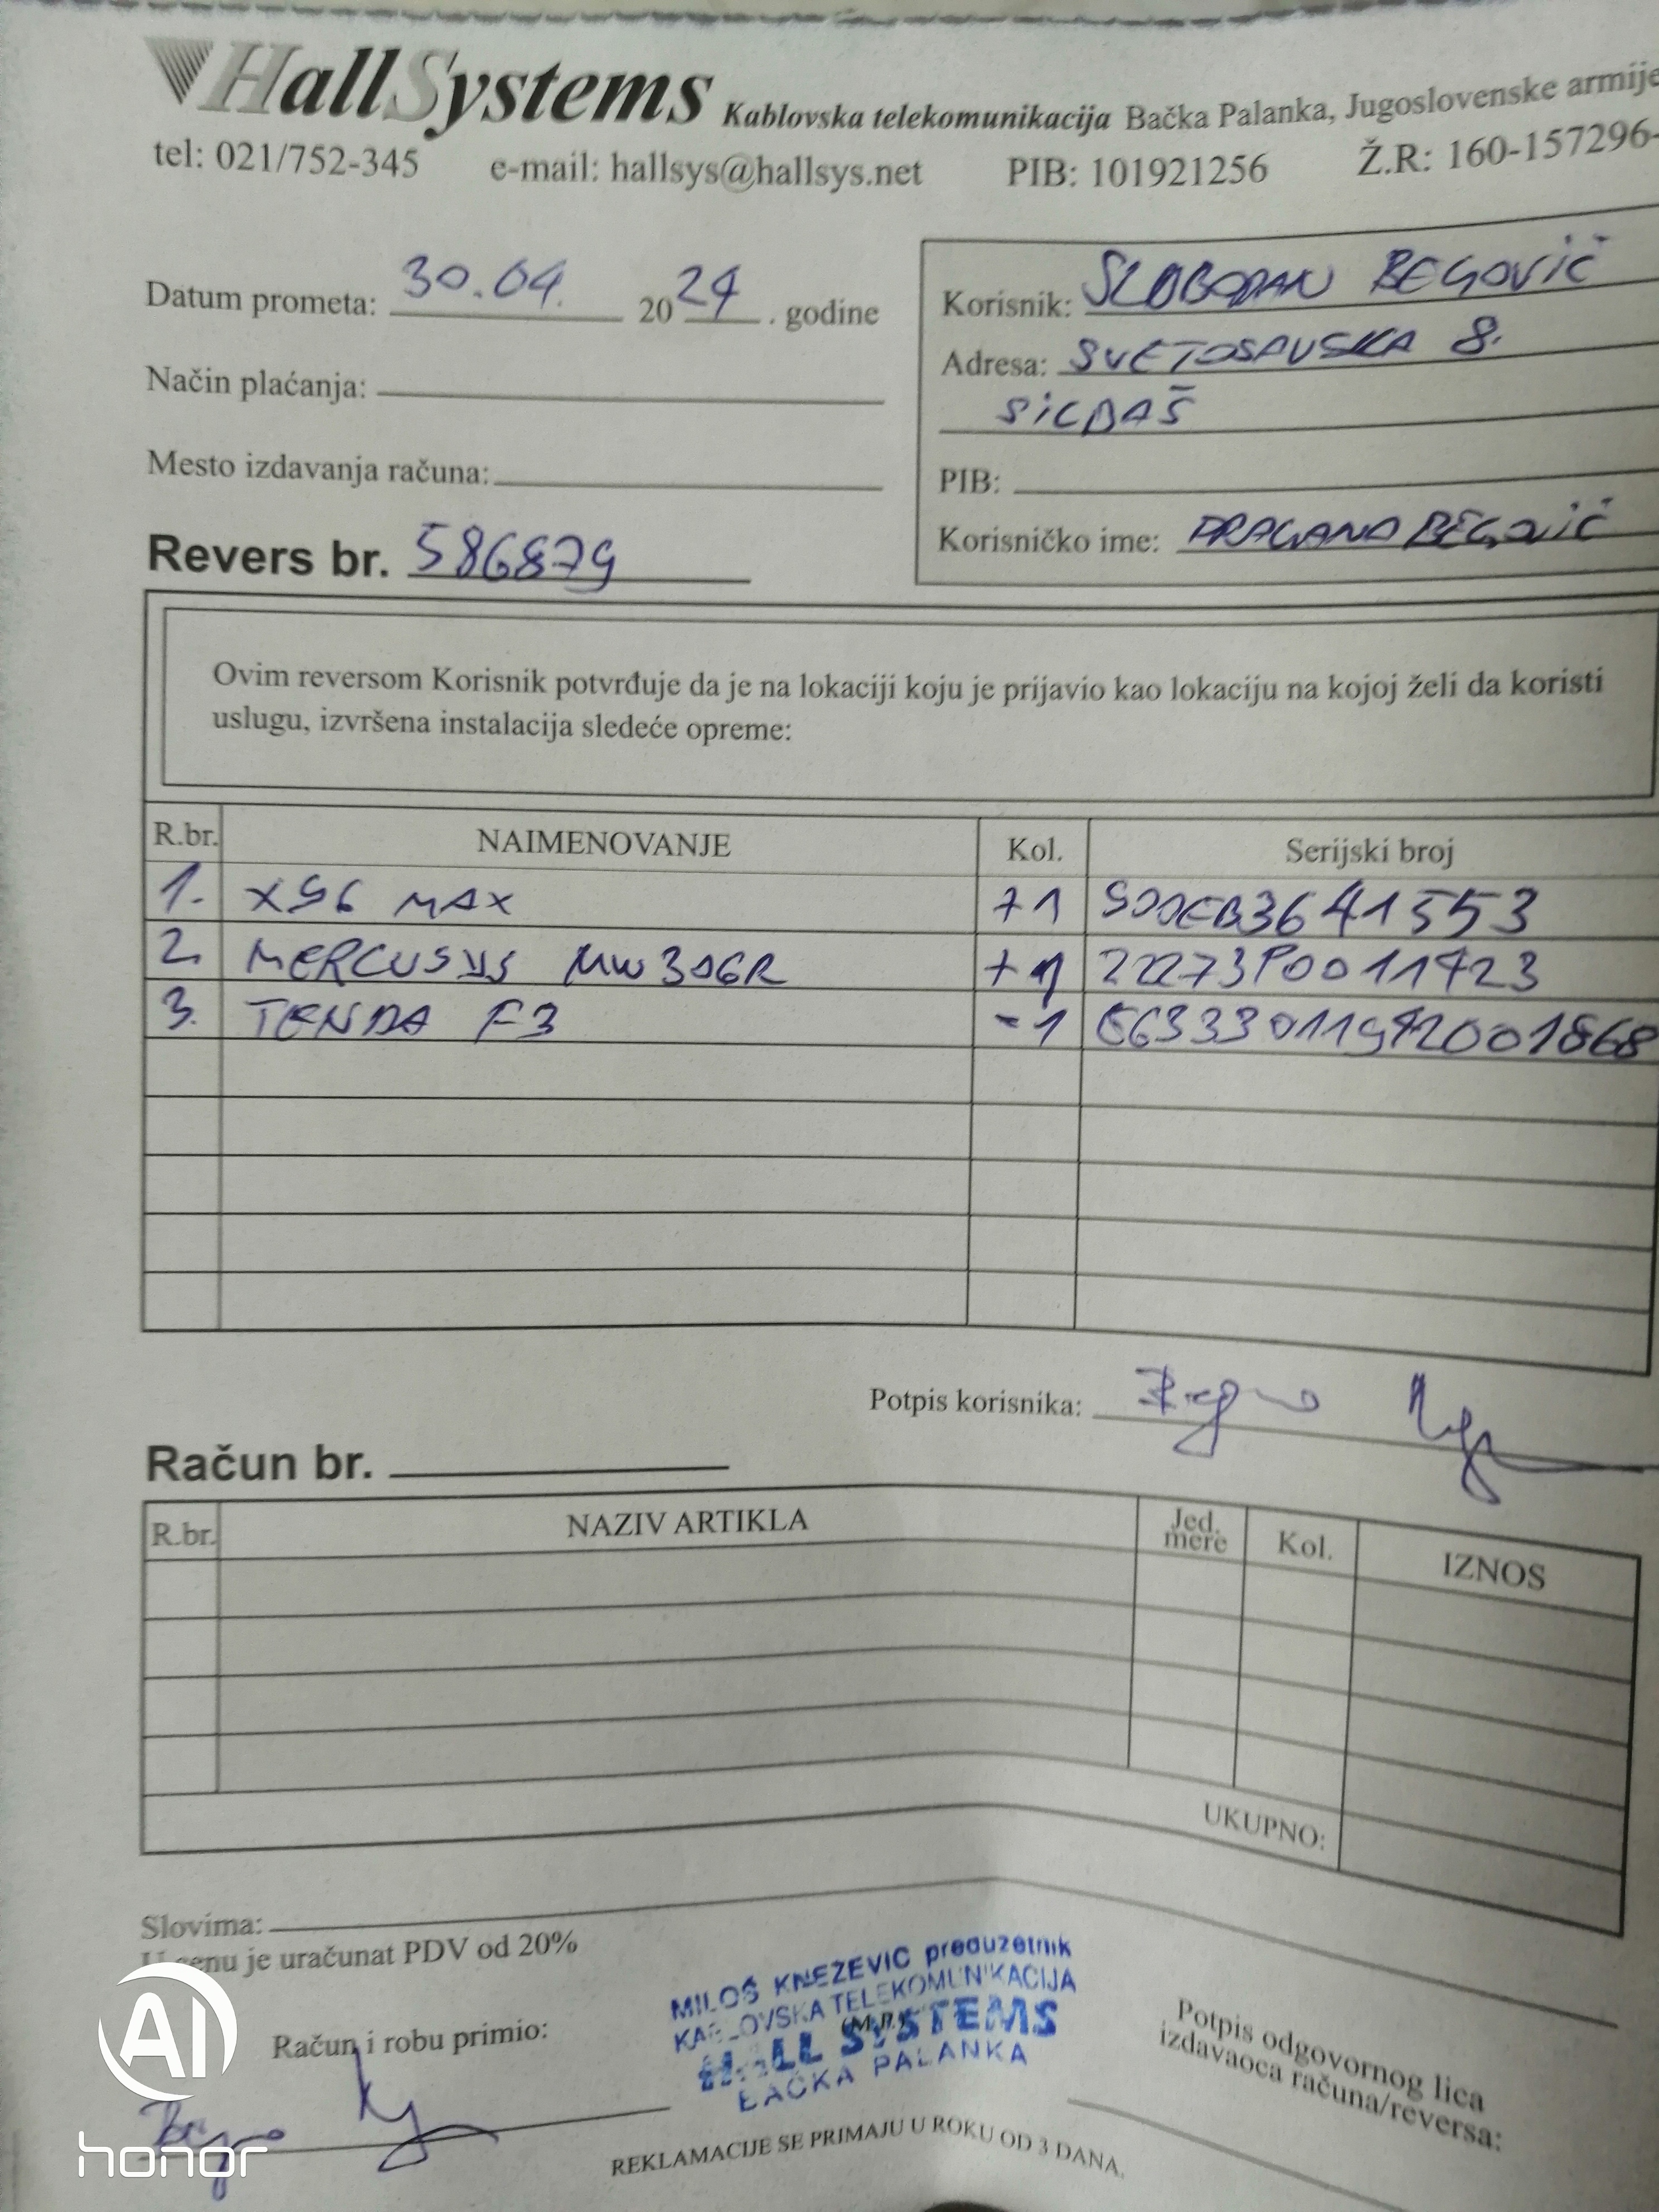 HallSystems Kablovska telekomunikacija Bačka Palanka, Jugoslovenske armije
tel: 021/752-345 e-mail: hallsys@hallsys.net PIB: 101921256 Ž.R: 160-157296-
Datum prometa: 30.04. 2024. godine
Način plaćanja:
Mesto izdavanja računa:
Revers br. 586879
Korisnik: SLOBODAN BEGOVIĆ
Adresa: SVETOSAVSKA 8.
SILBAŠ
PIB:
Korisničko ime: DRAGANA BEGOVIĆ
Ovim reversom Korisnik potvrđuje da je na lokaciji koju je prijavio kao lokaciju na kojoj želi da koristi
uslugu, izvršena instalacija sledeće opreme:
R.br. NAIMENOVANJE Kol. Serijski broj
1. X96 MAX +1
2. MERCUSYS MW306R +1 22273P0011423
3. TENDA F3 -1
Potpis korisnika:
Račun br.
R.br. NAZIV ARTIKLA Jed. mere Kol. IZNOS
UKUPNO:
Slovima:
U cenu je uračunat PDV od 20%
Račun i robu primio:
MILOŠ KNEŽEVIĆ preduzetnik
KABLOVSKA TELEKOMUNIKACIJA
(M.P.)
HALL SYSTEMS
BAČKA PALANKA
Potpis odgovornog lica
izdavaoca računa/reversa:
REKLAMACIJE SE PRIMAJU U ROKU OD 3 DANA.
AI
honor